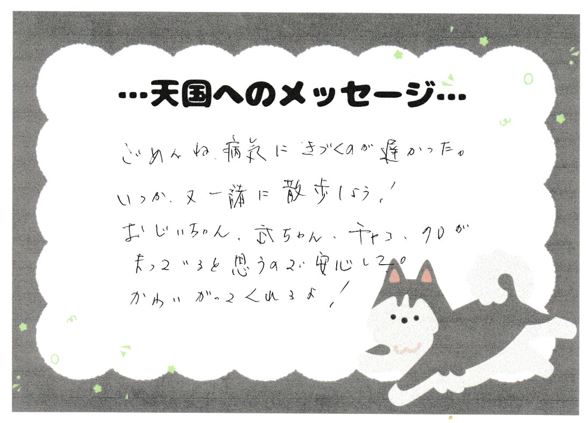 …天国へのメッセージ…
ごめんね。病気にきづくのが遅かった。
いつか、又一諸に散歩しよう!
おじいちゃん、武ちゃん、チャコ、クロが
まっていると思うので安心して。
かわいがってくれるよ!